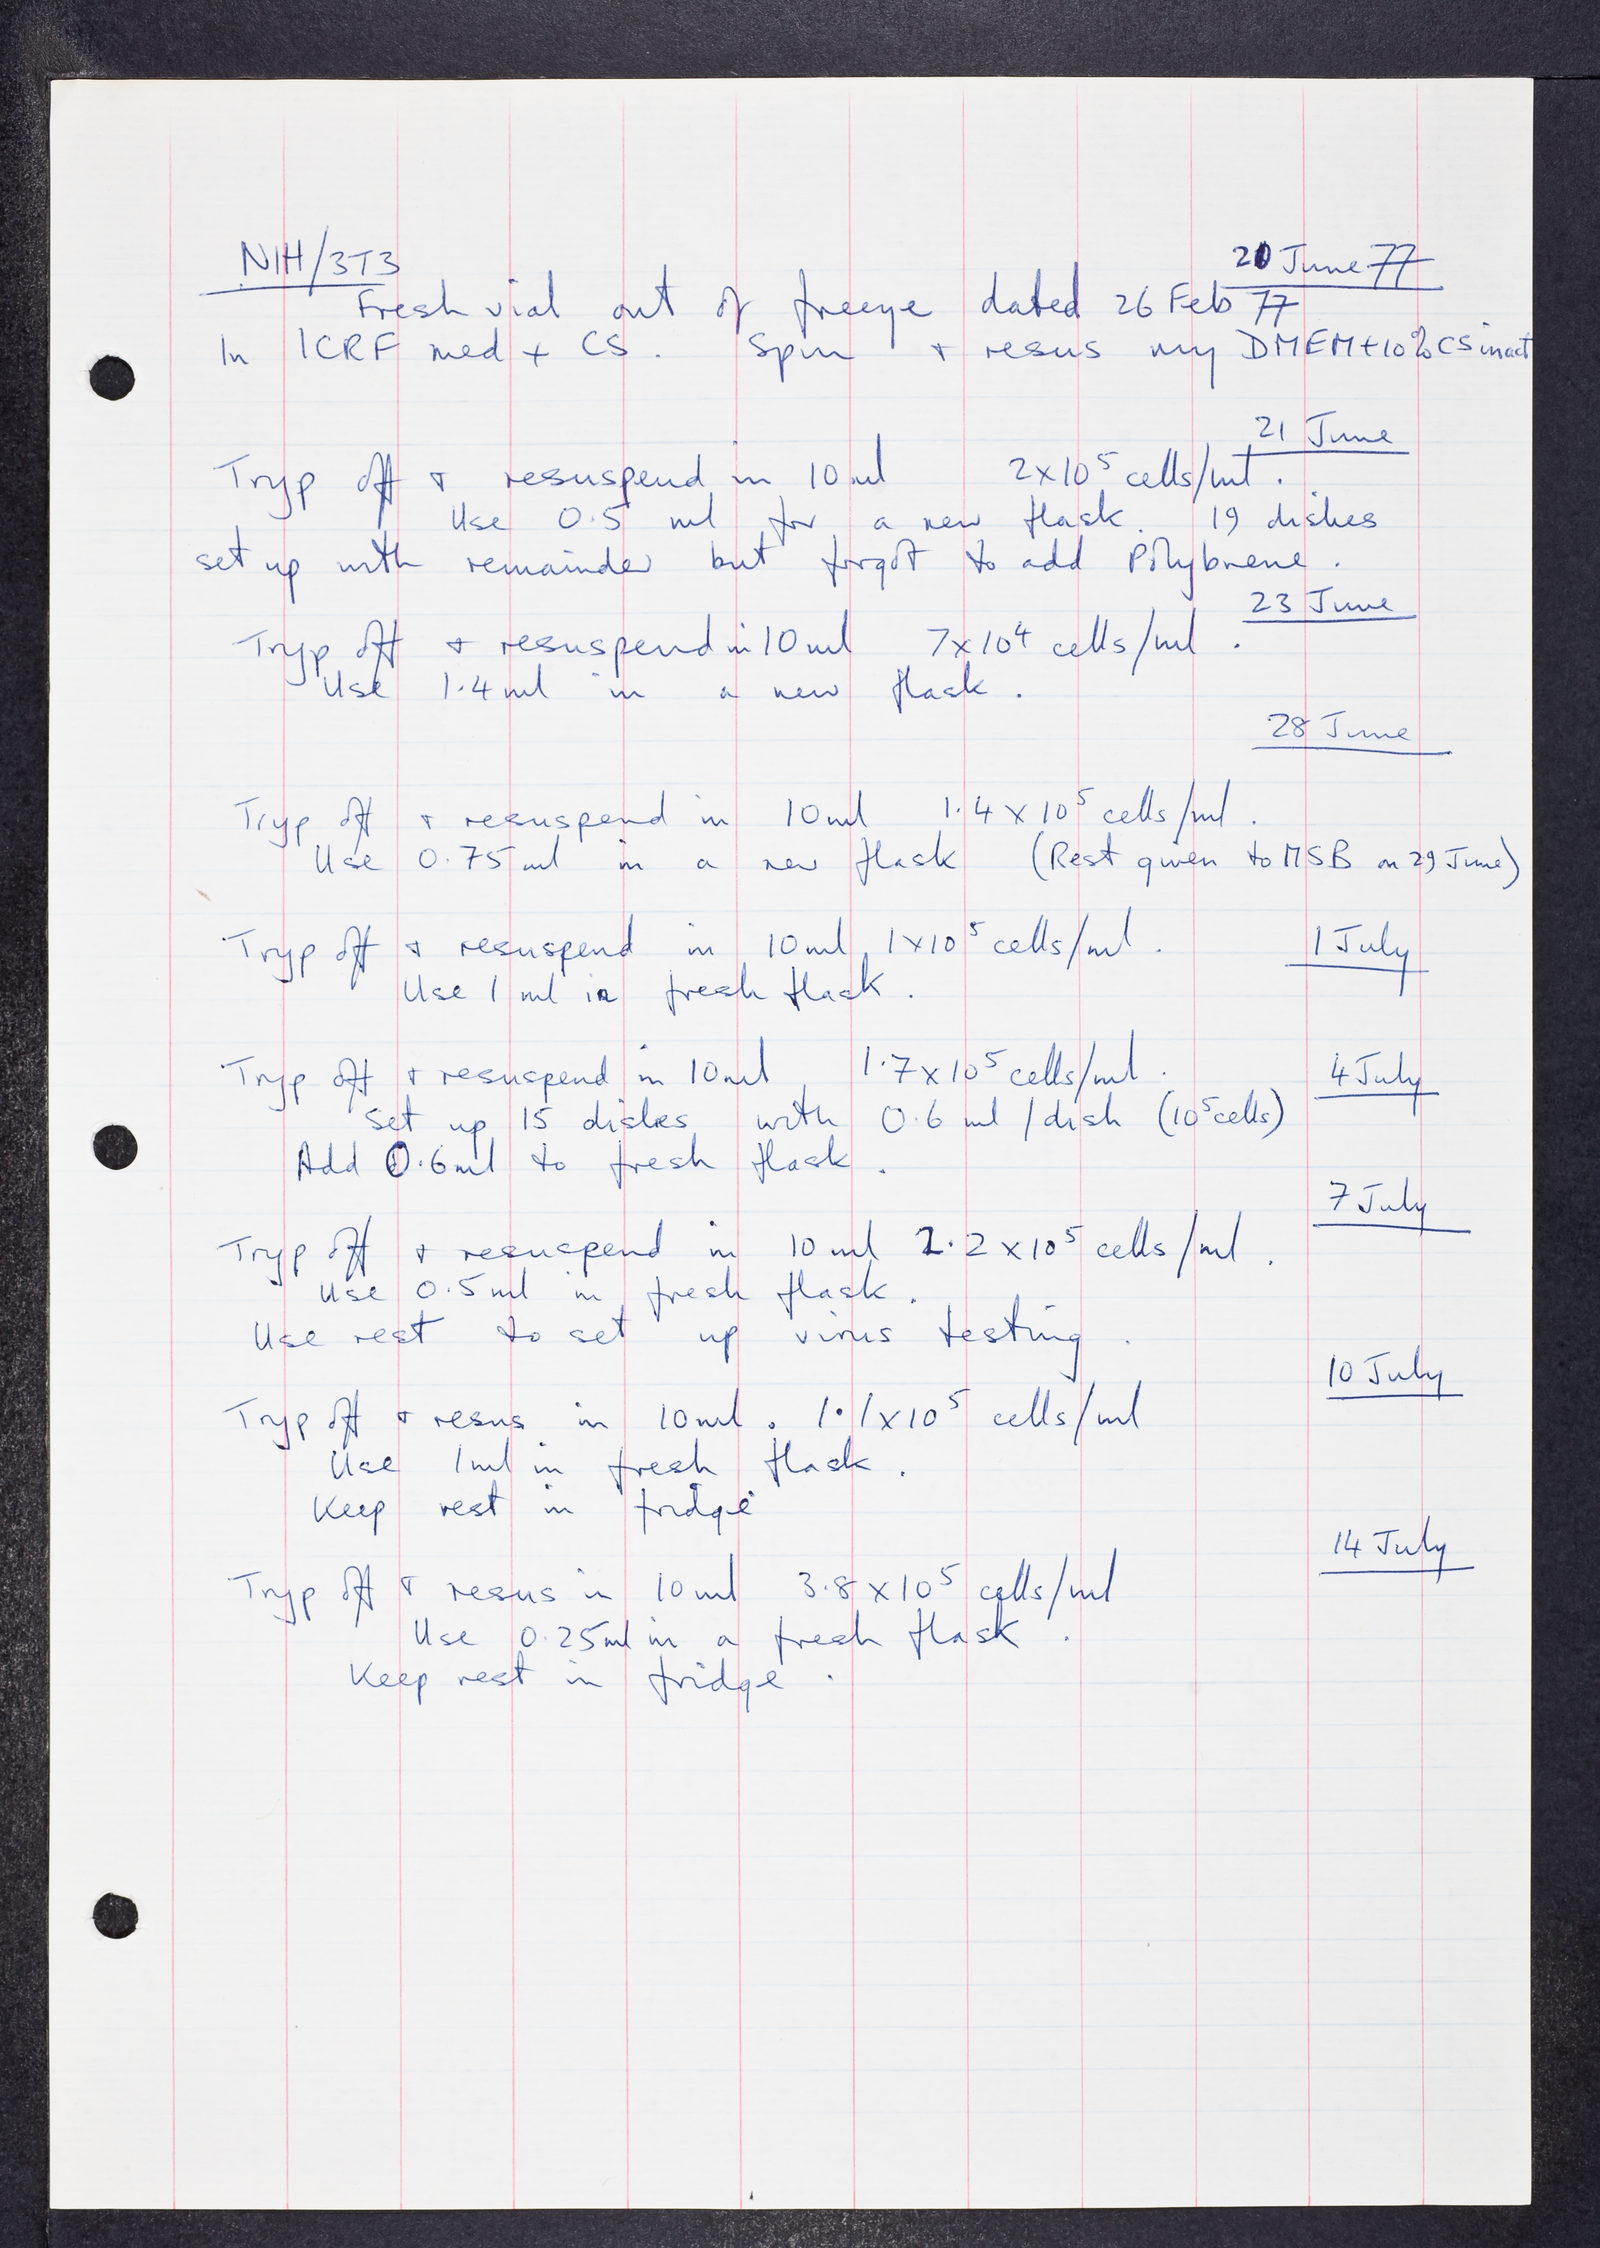 NIH/3T3
20 June 77
Fresh vial out of freeze dated 26 Feb 77
In ICRF med + CS. Spin + resus my DMEM+10% CS inact
21 June
Tryp off + resuspend in 10 ml 2x10⁵ cells/ml.
Use 0.5 ml for a new flask. 19 dishes
set up with remainder but forgot to add Polybrene.
23 June
Tryp off + resuspend in 10 ml 7x10⁴ cells/ml.
Use 1.4 ml in a new flask.
28 June
Tryp off + resuspend in 10 ml 1.4 x 10⁵ cells/ml.
Use 0.75 ml in a new flask (Rest given to MSB on 29 June)
Tryp off + resuspend in 10 ml 1x10⁵ cells/ml. 1 July
Use 1 ml in fresh flask.
Tryp off + resuspend in 10 ml 1.7x10⁵ cells/ml. 4 July
Set up 15 dishes with 0.6 ml/dish (10⁵ cells)
Add 0.6 ml to fresh flask.
7 July
Tryp off + resuspend in 10 ml 2.2x10⁵ cells/ml.
Use 0.5 ml in fresh flask.
Use rest to set up virus testing.
10 July
Tryp off + resus in 10 ml. 1.1x10⁵ cells/ml
Use 1 ml in fresh flask.
Keep rest in fridge
14 July
Tryp off + resus in 10 ml 3.8x10⁵ cells/ml
Use 0.25 ml in a fresh flask.
Keep rest in fridge.